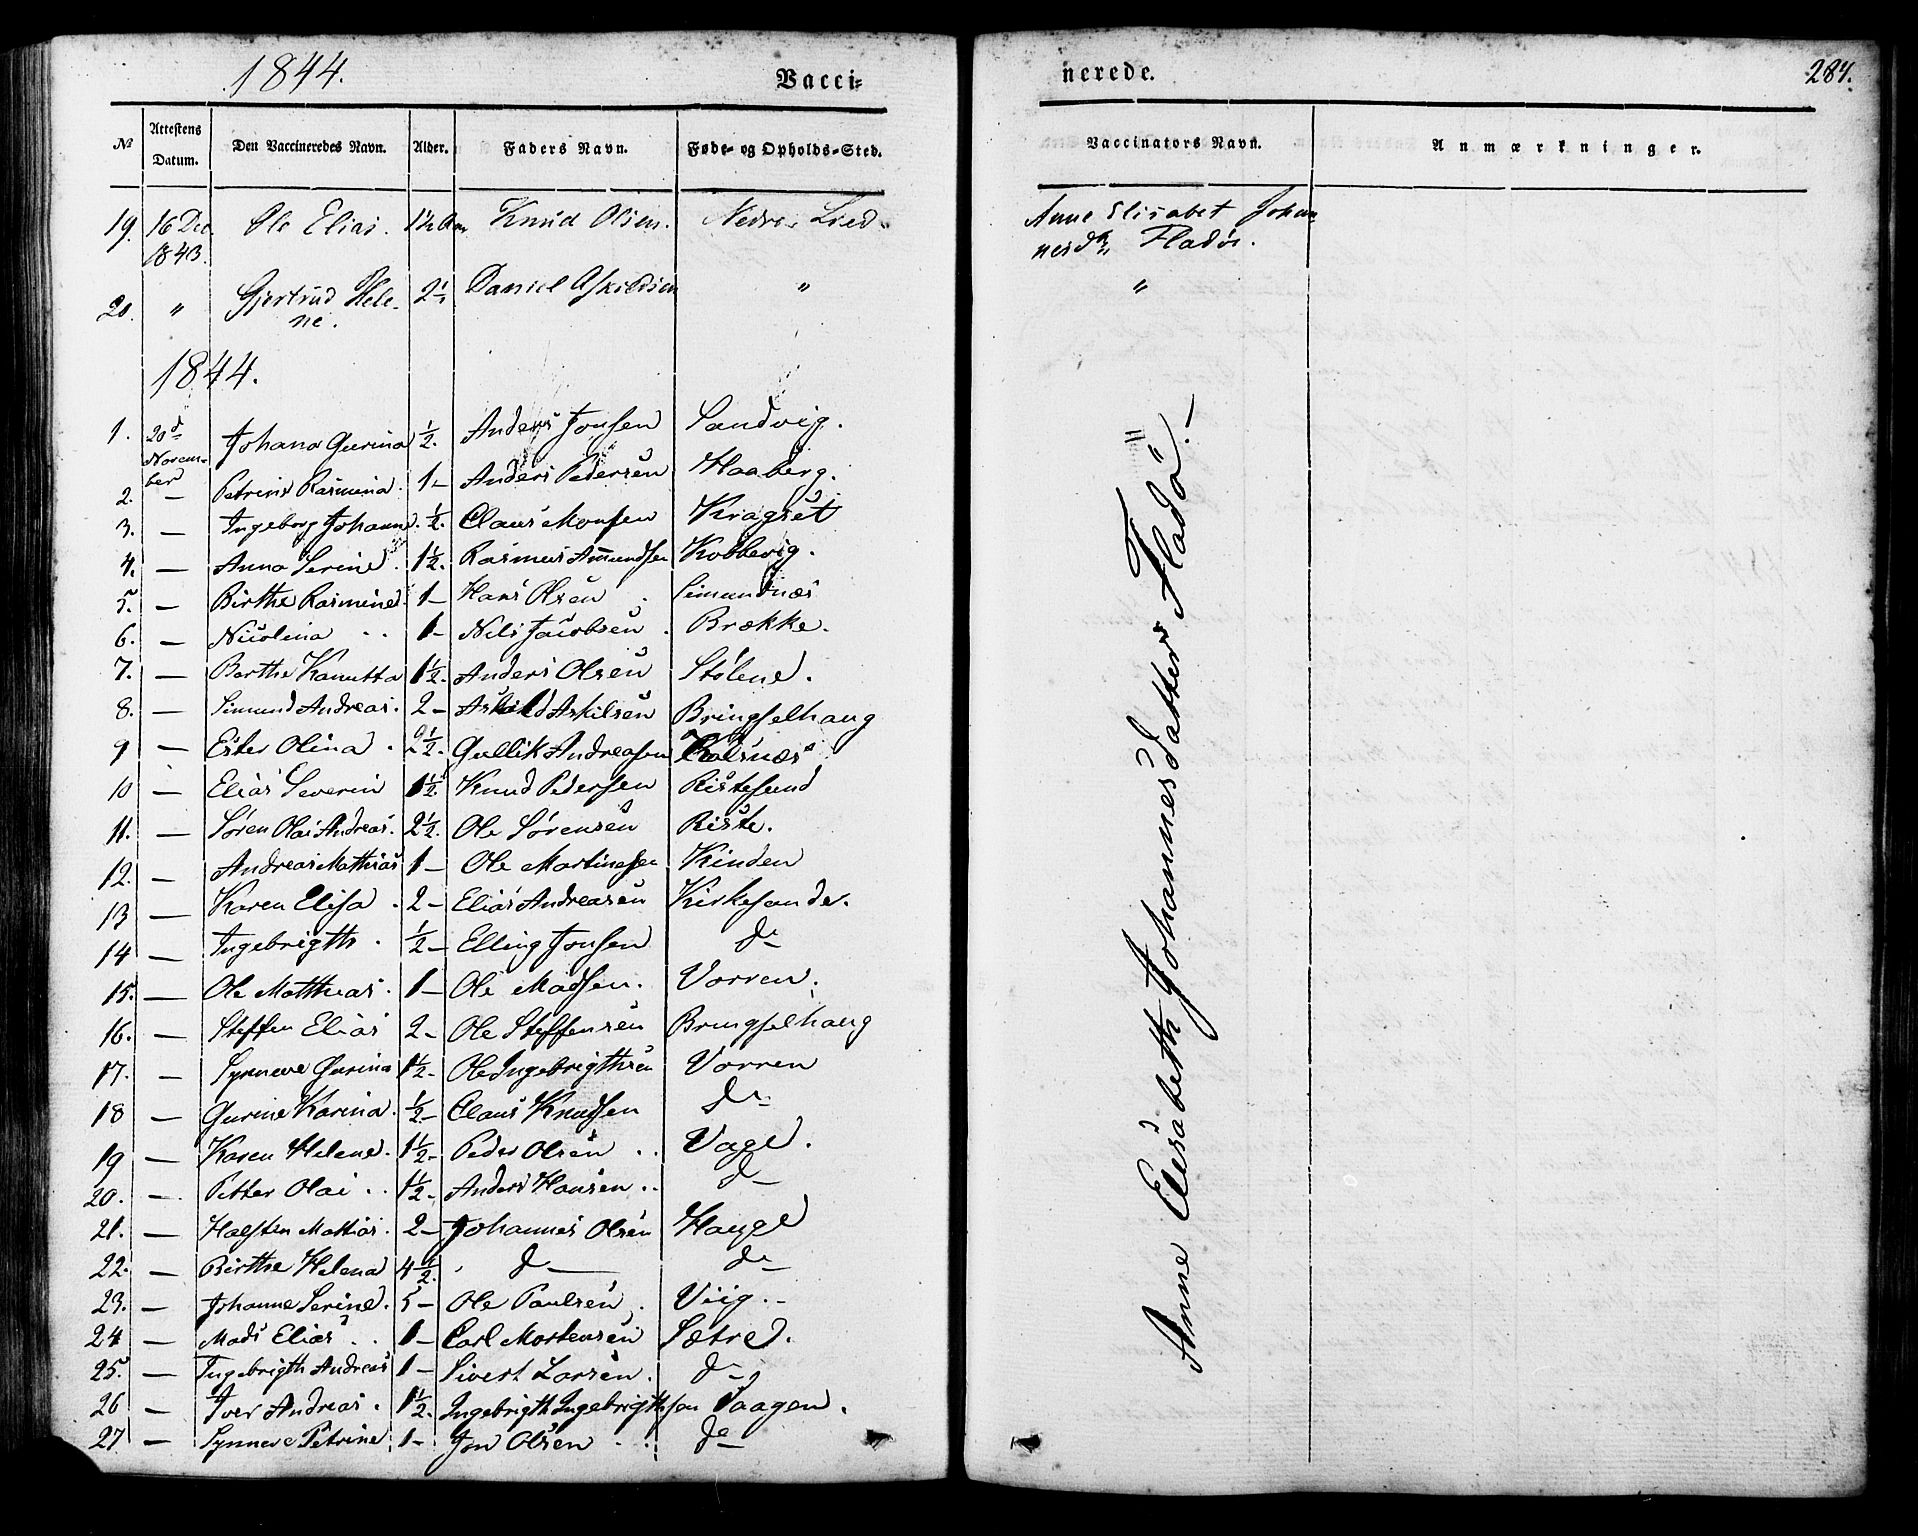 1844. Vacci-
№ Attestens Datum. Den Vaccineredes Navn. Alder. Faders Navn. Føde- og Opholds-Sted.
19. 16 Dec 1843. Ole Elias. 1½ Knud Olsen. Nedre
20. " Gjertrud Helene. 2½ Daniel Askildsen "
1844.
1. 20d November Johana Gurina ½. Anders Jonsen Sandvig.
2. — Petrine Rasmina. 1– Anders Pedersen Haaberg.
3. — Ingeborg Johanne. ½. Claus Monsen Kragset
4. — Anna Serine. 1½. Rasmus Amundsen Kobbevig.
5. — Birthe Rasmine. 1– Hans Olsen Simundnæs
6. — Nicolina 1– Nils Jacobsen Brække.
7. — Berthe Kanutta 1½. Anders Olsen Stølene.
8. — Simund Andreas. 2– Askild Askilsen Bringselhaug
9 — Ester Olina. 2½. Gullik Andreasen Kalsnæs
10 — Elias Severin 1½. Knud Pedersen Ristesund
11. — Søren Olai Andreas. 2½. Ole Sørensen Riste.
12. — Andreas Mathias 1– Ole Martinesen Kinden
13 — Karen Elisa. 2– Elias Andreasen Kirkesande.
14 — Ingebrigth. ½– Elling Jonsen do
15. — Ole Matthias. 1– Ole Madsen. Vorren.
16. — Steffen Elias 2– Ole Steffensen Bringselhaug
17. — Synneve Gurina 1½– Ole Ingebrigthsen Vorren
18 — Gurine Karina. ½– Claus Knudsen do
19 — Karen Helene. 1½– Peder Olsen Vage.
20. — Petter Olai 1½. Anders Hansen do
21. — Halsten Mathias. 2– Johannes Olsen Hauge
22. — Birthe Helena 4½. do do
23. — Johanne Serine. 5– Ole Paulsen. Viig.
24 — Mads Elias 1– Carl Mortensen Sætre.
25. — Ingebrigth Andreas 1– Sivert Larsen. do
26 — Iver Andreas. 1½. Ingebrigth Ingebrigthsen Vaagen.
27 — Synneve Petrine 1– Jon Olsen do
nerede. 284.
Vaccinators Navn. Anmærkninger.
Anne Elisabet Johan
nesdr. Fladø.
"
Anne Elisabeth Johannesdatter Fladø.